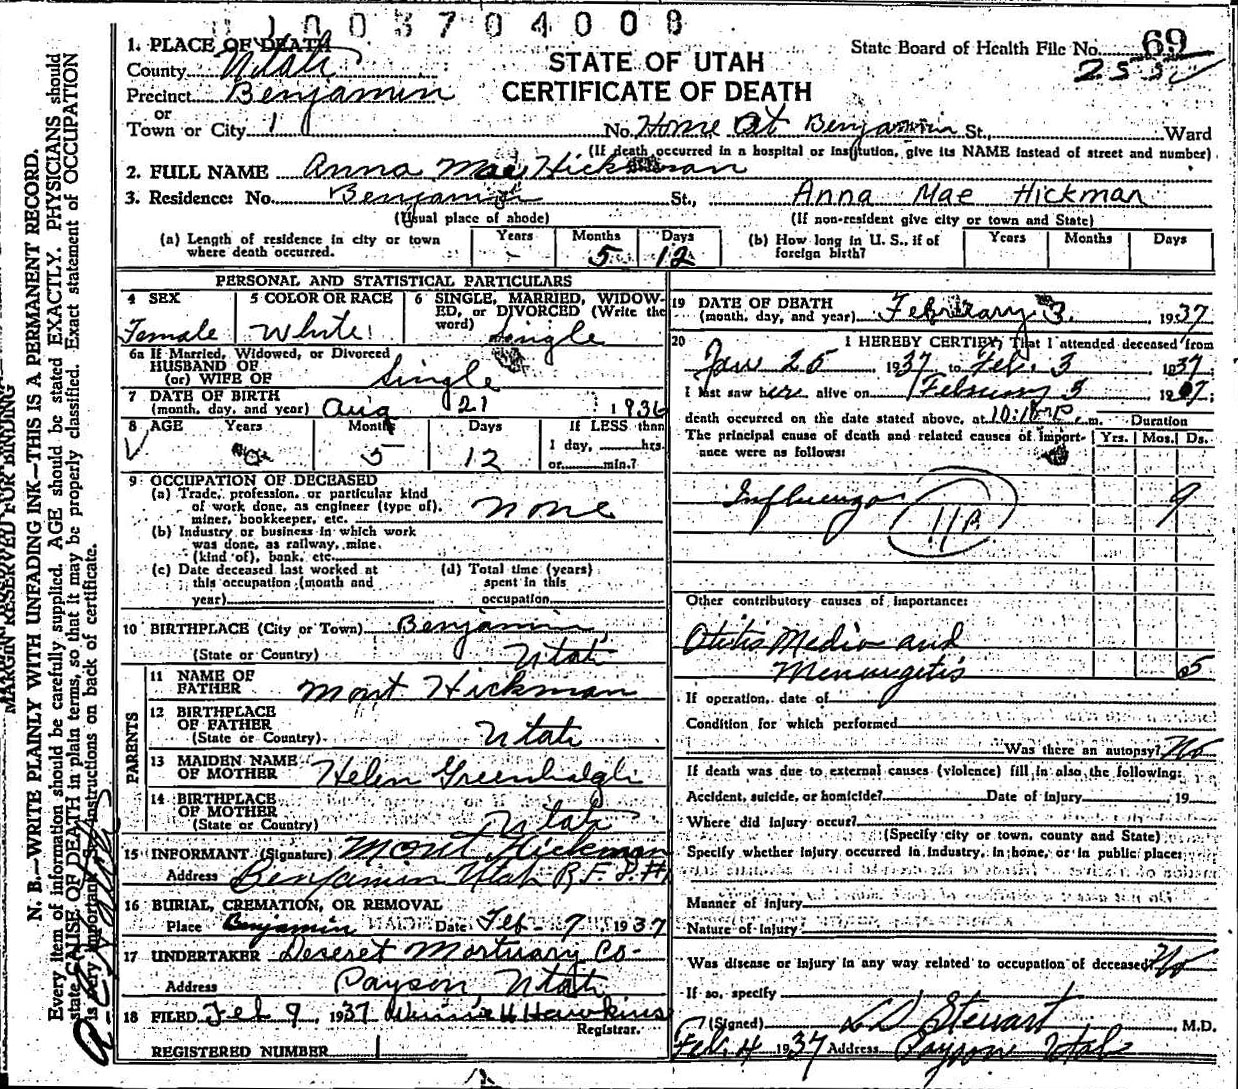 1003704008
1. PLACE OF DEATH
County Utah
Precinct Benjamin
or
Town or City 1
STATE OF UTAH
CERTIFICATE OF DEATH
State Board of Health File No. 69
255
No. Home At Benjamin St., Ward
(If death occurred in a hospital or institution, give its NAME instead of street and number)
2. FULL NAME Anna Mae Hickman
3. Residence: No. Benjamin St., Anna Mae Hickman
(Usual place of abode) (If non-resident give city or town and State)
(a) Length of residence in city or town where death occurred. Years - Months 5 Days 12
(b) How long in U. S., if of foreign birth? Years Months Days
PERSONAL AND STATISTICAL PARTICULARS
4 SEX Female
5 COLOR OR RACE White
6 SINGLE, MARRIED, WIDOWED, or DIVORCED (Write the word) Single
6a If Married, Widowed, or Divorced
HUSBAND OF
(or) WIFE OF Single
7 DATE OF BIRTH
(month, day, and year) Aug 21 1936
8 AGE Years 0 Months 5 Days 12 If LESS than
1 day, hrs.
or min.?
9 OCCUPATION OF DECEASED
(a) Trade, profession, or particular kind
of work done, as engineer (type of),
miner, bookkeeper, etc. none
(b) Industry or business in which work
was done, as railway, mine.
(kind of), bank, etc.
(c) Date deceased last worked at
this occupation (month and
year)
(d) Total time (years)
spent in this
occupation
10 BIRTHPLACE (City or Town) Benjamin,
(State or Country) Utah
PARENTS
11 NAME OF
FATHER Mont Hickman
12 BIRTHPLACE
OF FATHER
(State or Country) Utah
13 MAIDEN NAME
OF MOTHER Helen Greenhalgh
14 BIRTHPLACE
OF MOTHER
(State or Country) Utah
15 INFORMANT (Signature) Mont Hickman
Address Benjamin Utah R.F.D. #1
16 BURIAL, CREMATION, OR REMOVAL
Place Benjamin Date Feb 7 1937
17 UNDERTAKER Deseret Mortuary Co.
Address Payson Utah
18 FILED Feb 9, 1937 Winnie H Hawkins
Registrar.
REGISTERED NUMBER 1
19 DATE OF DEATH
(month, day, and year) February 3. 1937
20 I HEREBY CERTIFY, That I attended deceased from
Jan 25 1937 to Feb. 3 1937;
I last saw her alive on February 3 1937;
death occurred on the date stated above, at 10:10 P.m. Duration
The principal cause of death and related causes of importance were as follows: Yrs. Mos. Ds.
Influenza 11A 9
Other contributory causes of importance:
Otitis Media and
Meningetis 5
If operation, date of
Condition for which performed
Was there an autopsy? No
If death was due to external causes (violence) fill in also the following:
Accident, suicide, or homicide? Date of injury , 19
Where did injury occur?
(Specify city or town, county and State)
Specify whether injury occurred in industry, in home, or in public place:
Manner of injury
Nature of injury
Was disease or injury in any way related to occupation of deceased? No
If so, specify
(Signed) L D Stewart, M.D.
Feb. 4 1937 Address Payson Utah
MARGIN RESERVED FOR BINDING
N. B.—WRITE PLAINLY WITH UNFADING INK—THIS IS A PERMANENT RECORD.
Every item of information should be carefully supplied. AGE should be stated EXACTLY. PHYSICIANS should
state CAUSE OF DEATH in plain terms, so that it may be properly classified. Exact statement of OCCUPATION
is very important. See instructions on back of certificate.